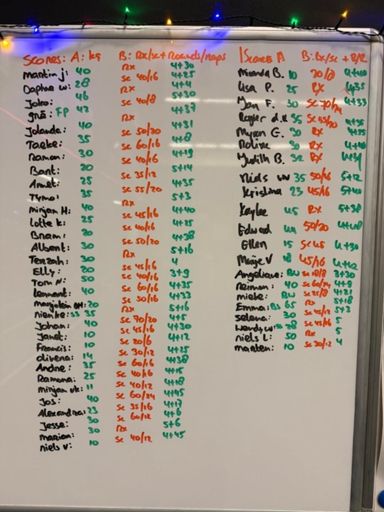 Scores: A: kg B: Rx/sc + Rounds/reps
martin j: 40 Rx 4+30
Daphne w: 28 sc 40/16 4+25
Joko: 46 Rx 4+4
FP 42 sc 40/8 5+30
Jolanda: 40 Rx 4+37
Taeke: 35 sc 50/20 4+31
Ramon: 30 sc 60/16 4+8
Bart: 20 sc 40/16 4+19
Annet: 25 sc 35/12 5+14
Tymo: 35 sc 55/20 4+35
mirjam H: 40 Rx 5+3
Lotte k: 25 sc 45/16 4+40
Bram: 20 sc 40/16 4+25
Albert: 30 sc 50/20 4+38
Terzah: 30 Rx 5+16
Elly: 20 sc 45/16 4
Tom N: 50 sc 40/16 3+9
Lennart: 40 sc 60/16 4+35
20 sc 30/16 4+33
nienke: 35 Rx 5+16
Johan: 40 sc 70/20 4+5
Janet: 10 sc 45/16 4+30
Francis: 10 sc 20/6 4+12
Olivera: 14 sc 30/12 4+25
Andre: 35 sc 60/16 4+38
Ramona: 25 sc 40/16 4+15
mirjam vk: 11 sc 40/12 4+18
Jos: 40 sc 60/24 4+45
Alexandra: 23 sc 35/16 4+17
Jesse: 30 sc 60/12 4+6
marian: 30 Rx 5+6
niels v: 10 sc 40/12 4+45
Scores A B: Rx/sc + R/R
Miranda B. 10 20/8 4+40
Lisa P. 25 Rx 4+35
Jan F. 30 sc 70/24 4+33
Rogier d.k 35 sc 45/20 4+35
Myron G. 30 Rx 4+25
Nadine 30 Rx 4+40
Judith B. 32 Rx 4+34
Niels vw 35 50/16 5+12
Kristina 23 45/16 5+40
Kaylee 45 Rx 5+38
Edward 44 50/20 4+48
Ellen 15 sc 45 4+30
Marije V 18 45/16 4+42
Angelique: BW sc 18/8 3+30
Reimon: 40 sc 60/24 4+9
mieke: BW sc 25/8 4+21
Emma: 65 Rx 5+18
Selena: 30 sc 45/12 5+3
Wendy 28 sc 45/16 5
niels L: 50 Rx 5
maarten: 10 sc 30/12 4